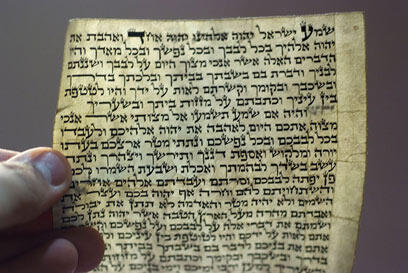 שמע ישראל יהוה אלהינו יהוה אחד ואהבת את
יהוה אלהיך בכל לבבך ובכל נפשך ובכל מאדך והיו
הדברים האלה אשר אנכי מצוך היום על לבבך ושננתם
לבניך ודברת בם בשבתך בביתך ובלכתך בדרך
ובשכבך ובקומך וקשרתם לאות על ידך והיו לטטפת
בין עיניך וכתבתם על מזזות ביתך ובשעריך
והיה אם שמע תשמעו אל מצותי אשר אנכי
מצוה אתכם היום לאהבה את יהוה אלהיכם ולעבדו
בכל לבבכם ובכל נפשכם ונתתי מטר ארצכם בעתו
יורה ומלקוש ואספת דגנך ותירשך ויצהרך ונתתי
עשב בשדך לבהמתך ואכלת ושבעת השמרו לכם
פן יפתה לבבכם וסרתם ועבדתם אלהים אחרים
והשתחויתם להם וחרה אף יהוה בכם ועצר את
השמים ולא יהיה מטר והאדמה לא תתן את יבולה
ואבדתם מהרה מעל הארץ הטבה אשר יהוה נתן לכם
ושמתם את דברי אלה על לבבכם ועל נפשכם וקשרתם
אתם לאות על ידכם והיו לטוטפת בין עיניכם
אתם את בניכם לדבר בם בשבתך בביתך